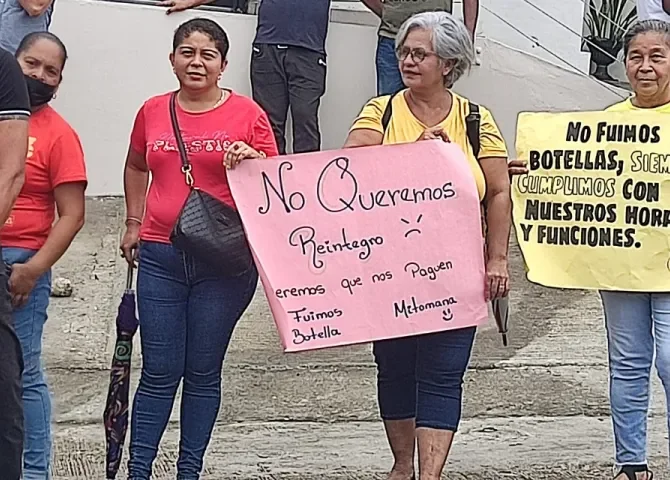 No Queremos
Reintegro
eremos que nos Paguen
Fuimos
Botella
Mitomana
No Fuimos
BOTELLAS, SIEM
CUMPLIMOS CON
NUESTROS HORA
Y FUNCIONES.